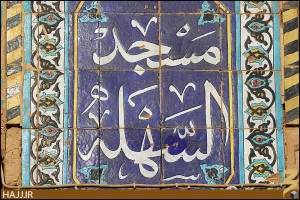 مسجد
السهلة
HAJJ.IR